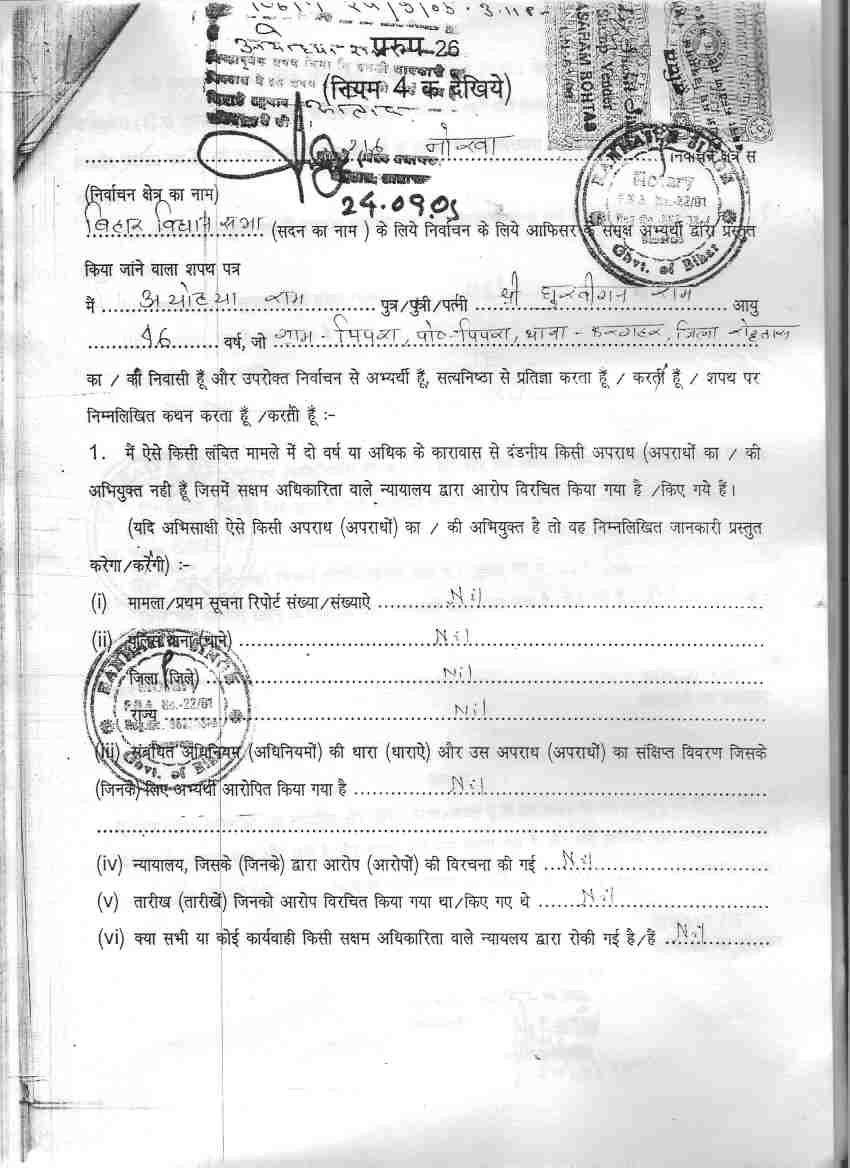 प्ररुप-26
(नियम 4 क देखिये)
216 नोखा निर्वाचन क्षेत्र स
24.09.05
(निर्वाचन क्षेत्र का नाम)
बिहार विधान सभा (सदन का नाम ) के लिये निर्वाचन के लिये आफिसर के समक्ष अभ्यर्थी द्वारा प्रस्तुत
किया जाने वाला शपथ पत्र
मैं अयोध्या राम पुत्र/पुत्री/पत्नी श्री घुरबीगन राम आयु
46 वर्ष, जो ग्राम-पिपरा, पो०-पिपरा, थाना-करगहर, जिला रोहतास
का / की निवासी हूँ और उपरोक्त निर्वाचन से अभ्यर्थी हूँ, सत्यनिष्ठा से प्रतिज्ञा करता हूँ / करती हूँ / शपथ पर
निम्नलिखित कथन करता हूँ /करती हूँ :-
1. मैं ऐसे किसी लंबित मामले में दो वर्ष या अधिक के कारावास से दंडनीय किसी अपराध (अपराधों का / की
अभियुक्त नही हूँ जिसमें सक्षम अधिकारिता वाले न्यायालय द्वारा आरोप विरचित किया गया है /किए गये हैं।
(यदि अभिसाक्षी ऐसे किसी अपराध (अपराधों) का / की अभियुक्त है तो वह निम्नलिखित जानकारी प्रस्तुत
करेगा/करेंगी) :-
(i) मामला/प्रथम सूचना रिपोर्ट संख्या/संख्याऐ Nil
(ii) पुलिस थाना (थाने) Nil
जिला (जिले) Nil
राज्य Nil
(iii) संबंधित अधिनियम (अधिनियमों) की धारा (धाराऐ) और उस अपराध (अपराधों) का संक्षिप्त विवरण जिसके
(जिनके) लिए अभ्यर्थी आरोपित किया गया है Nil
(iv) न्यायालय, जिसके (जिनके) द्वारा आरोप (आरोपों) की विरचना की गई Nil
(v) तारीख (तारीखें) जिनको आरोप विरचित किया गया था/किए गए थे Nil
(vi) क्या सभी या कोई कार्यवाही किसी सक्षम अधिकारिता वाले न्यायलय द्वारा रोकी गई है/हैं Nil
Notary
Govt. of Bihar
Govt. of Bihar
SASARAM ROHTAS